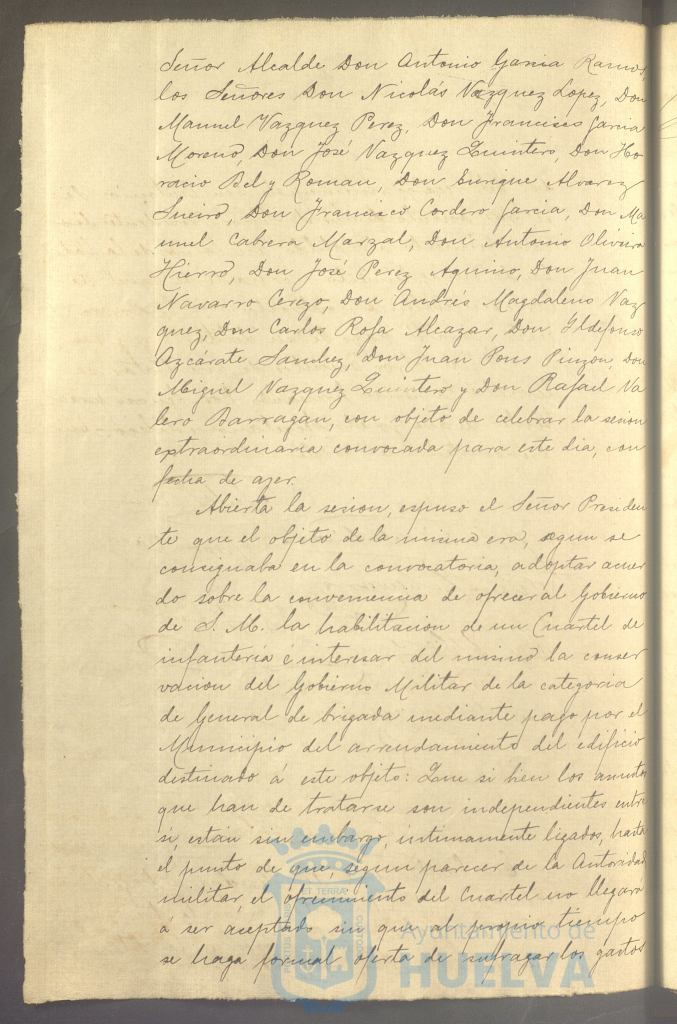 Señor Alcalde Don Antonio Garcia Ramos,
los Señores Don Nicolás Vazquez Lopez, Don
Manuel Vazquez Perez, Don Francisco Garcia
Moreno, Don José Vazquez Quintero, Don Ho
racio Bel y Roman, Don Enrique Alvarez
Sueiro, Don Francisco Cordero Garcia, Don Ma
nuel Cabrera Marzal, Don Antonio Oliveira
Hierro, Don José Perez Aquino, Don Juan
Navarro Cerezo, Don Andrés Magdaleno Vaz
quez, Don Carlos Rofa Alcazar, Don Yldefonso
Azcárate Sanchez, Don Juan Pons Pinzon, Don
Miguel Vazquez Quintero y Don Rafael Va
lero Barragan, con objeto de celebrar la sesion
extraordinaria convocada para este dia, con
fecha de ayer.
Abierta la sesion, espuso el Señor Presiden
te que el objeto de la misma era, segun se
consignaba en la convocatoria, adoptar acuer
do sobre la conveniencia de ofrecer al Gobierno
de S. M. la habilitacion de un Cuartel de
infanteria é interesar del mismo la conser
vacion del Gobierno Militar de la categoria
de General de brigada mediante pago por el
Municipio del arrendamiento del edificio
destinado á este objeto: Que si bien los asuntos
que han de tratarse son independientes entre
si, están sin embargo, intimamente ligados, hasta
el punto de que, segun parecer de la Autoridad
militar, el ofrecimiento del Cuartel no llegara
á ser aceptado sin que al propio tiempo
se haga formal oferta de sufragar los gastos
Ayuntamiento de
HUELVA